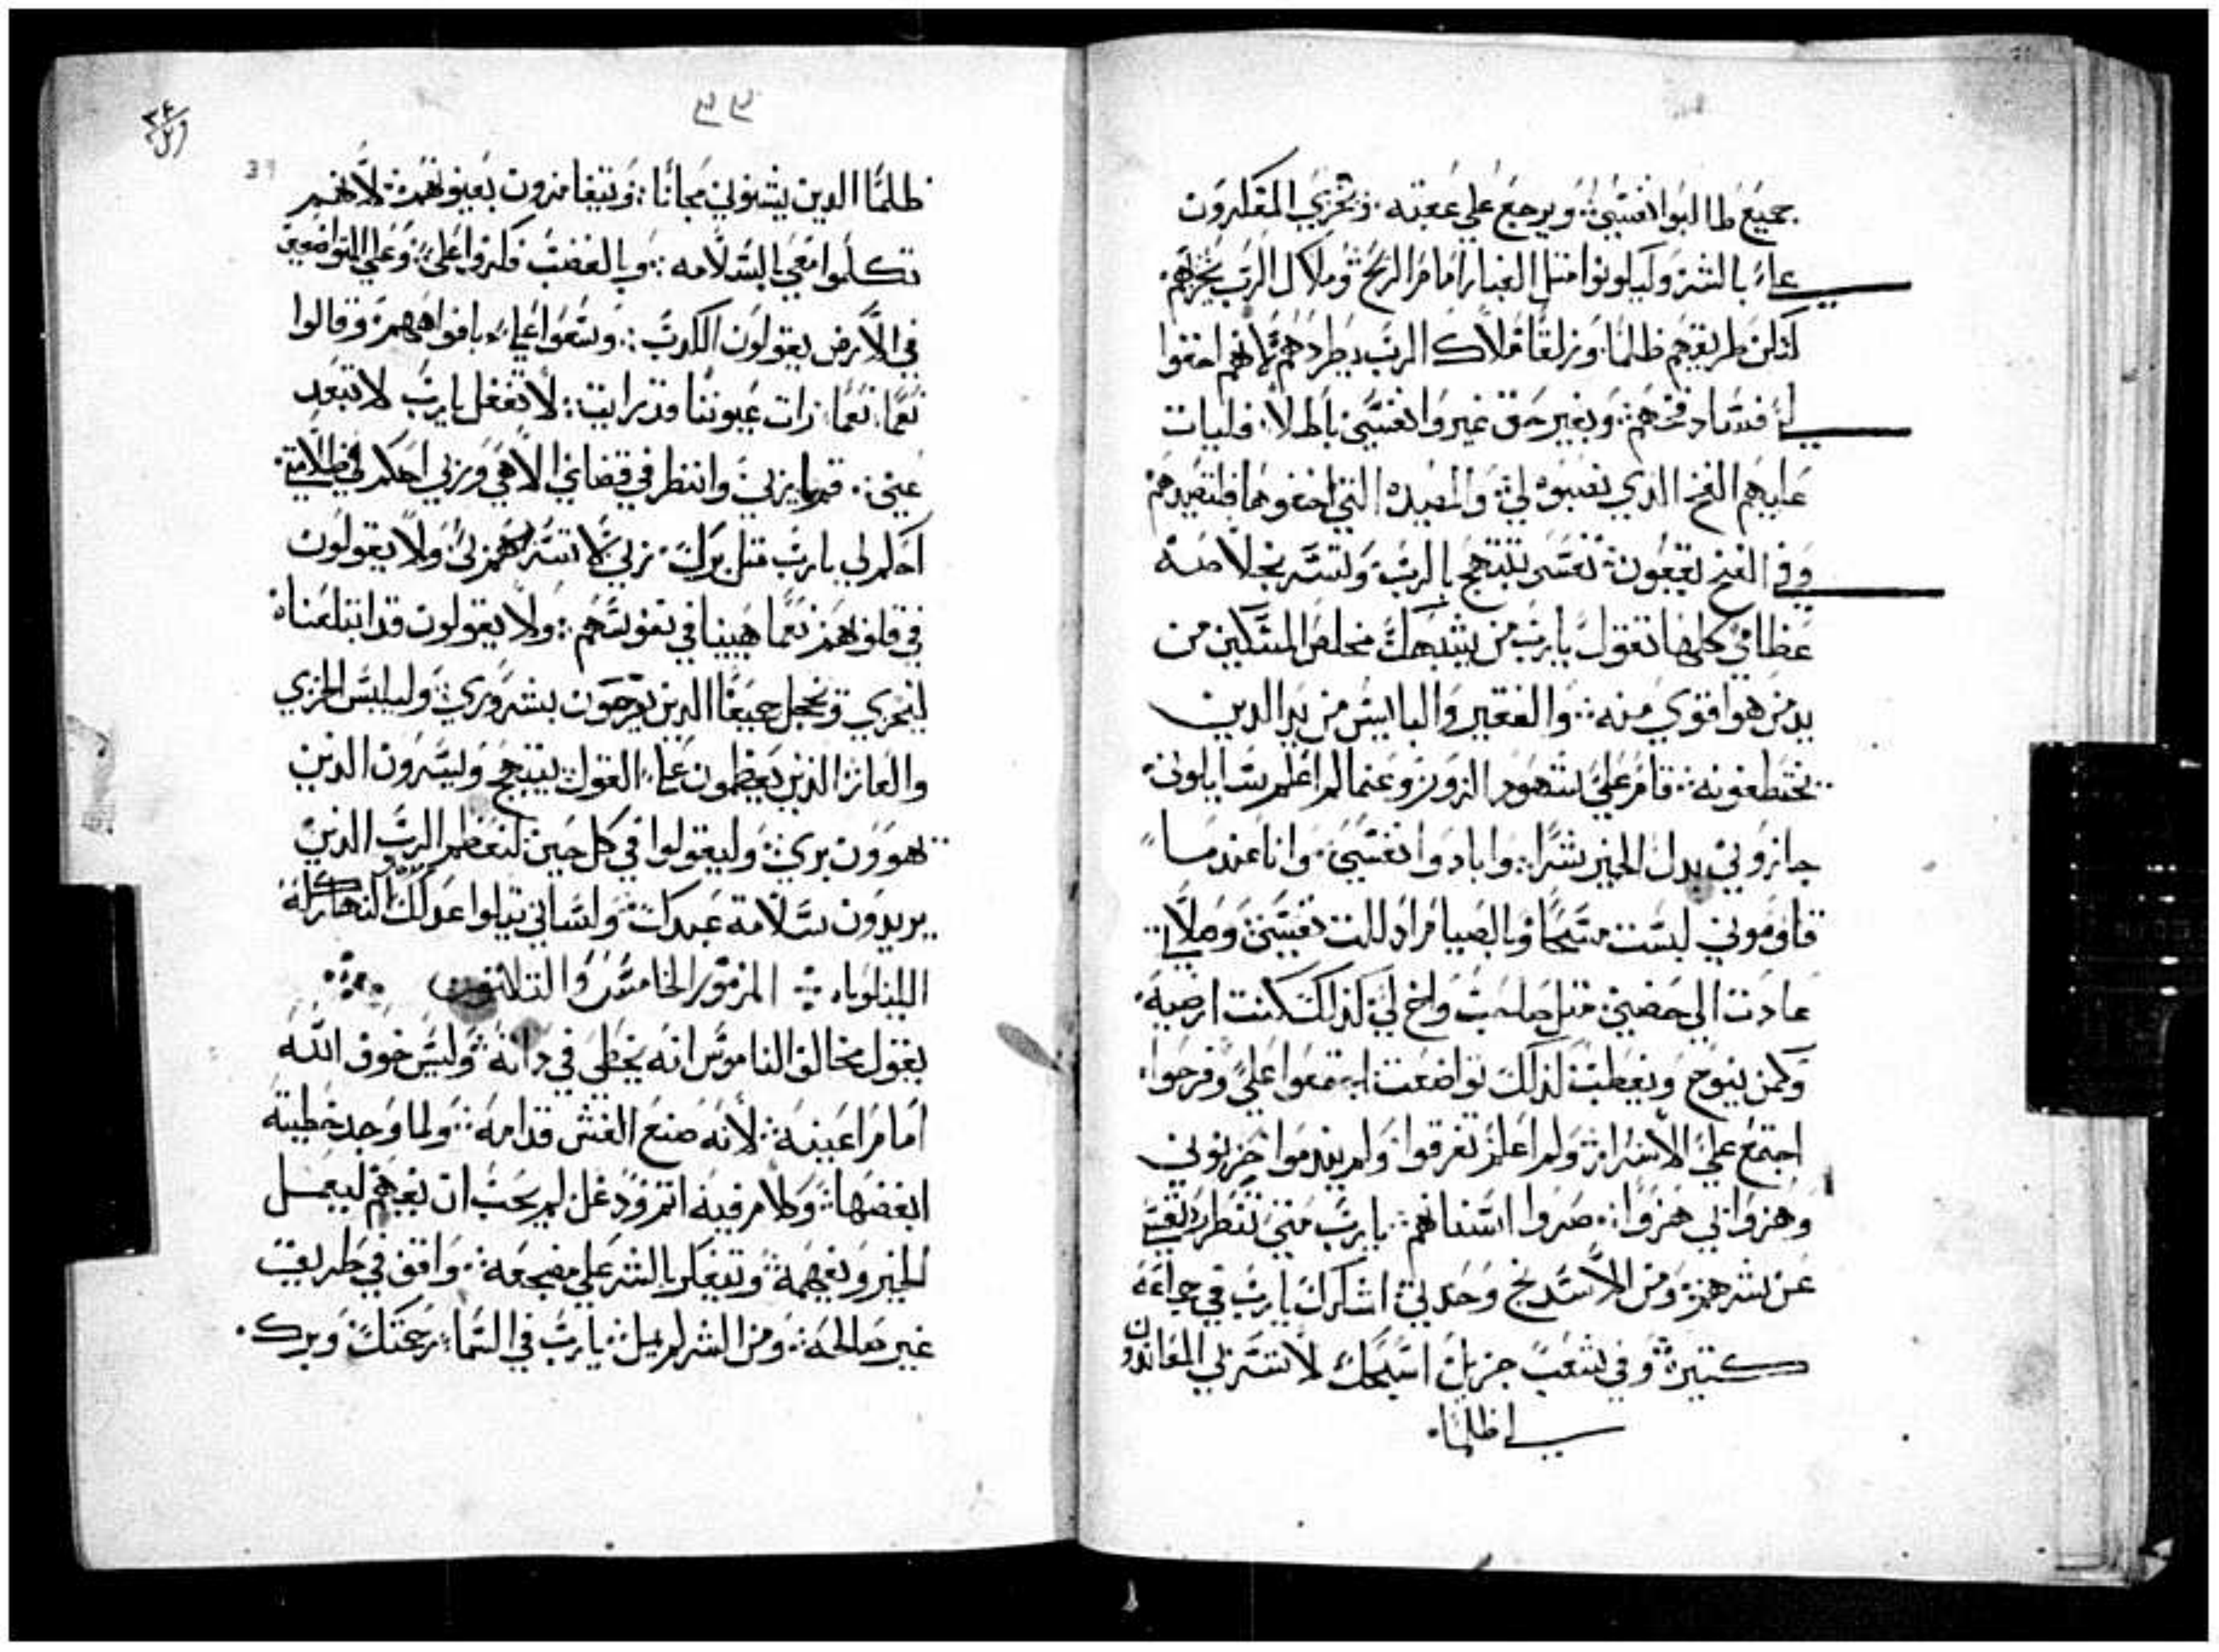 جميع طالبوا نفسي: ويرجع علي عقبه. وتخزي المفكرون
علي بالشر وليكونوا مثل الغبار امام الريح وملاك الرب يخزيهم.
لتكن طريقهم ظلما وزلقا وملاك الرب يطردهم لانهم اخفوا
لي فساد فخهم: وبغير حق عيروا نفسي باطلا. فليات
عليهم الفخ الذي نصبوه لي والمصيده التي اخفوها فلتصيدهم
وفي الفخ يقعون: نفسي تبتهج بالرب وتسر بخلاصه
عظامي كلها تقول يارب من يشبهك مخلص المسكين من
يد من هو اقوي منه: والفقير والبايس من يد الدين
يختطفونه: قام علي شهود الزور وعما لم اعلم سايلوني.
جازوني بدل الخير شرا: وابادوا نفسي. وانا عندما
قاوموني لبست مسحا وبالصيام اذللت نفسي وصلاتي
عادت الي حضني: مثل صاحب واخ لي كذلك كنت ارضيه.
وكمن ينوح ويعطب كذلك تواضعت اجتمعوا علي وفرحوا.
اجتمع علي الاشرار: ولم اعلم تفرقوا ولم يندموا حزبوني
وهزوا بي هزوا: صروا اسنانهم: يارب متي تنظر رد نفسي
عن شرهم: ومن الاسد نج وحدتي: اشكرك يارب في جماعه
كتيرة: وفي شعب جزيل اسبحك لا تسر بي المعاندون
لي ظلما.
٣٣
ظلما الدين يشنوني مجانا: ويتغامزون بعيونهم: لانهم
تكلموا معي بالسلامه: وبالغضب فكروا علي: وعلي المتواضعين
في الارض يقولون الكدب: وسعوا علي بافواههم: وقالوا
نعما نعما: رات عيوننا قد رايت: لا تغفل يارب لا تبعد
عني. قم يا ربي وانظر في قضاي الاهي وربي احكم في ظلامتي.
احكم لي يارب مثل برك: ربي لا تسرهم بي: ولا يقولون
في قلوبهم: نعما هيينا في نفوسهم: ولا يقولون قد ابتلعناه
ليخزي ويخجل جميعا الدين يفرحون بشروري: وليلبس الخزي
والعار: الذين يعظمون علي القول: يبتهج ويسرون الذين
يهوون بري: وليقولوا في كل حين: ليعظم الرب الذين
يريدون سلامة عبدك: ولساني يتلوا عدلك النهار كله
المزمور الخامس والتلاتون
يقول مخالف الناموس انه يخطي في ذاته: وليس خوف الله
امام اعينه: لانه صنع الغش قدامه: ولما وجد خطيته
ابغضها: وكلام فيه اتم ودغل لم يحب ان يفهم ليعمل
الخير ويفهمه: وتفكر بالشر علي مضجعه: واقف في طريق
غير صالحه: ومن الشر لم يمل: يارب في السما رحمتك: وبرك.